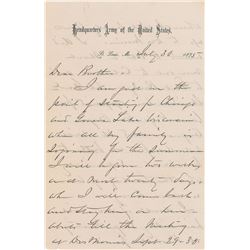 Headquarters Army of the United States.
St. Louis, Mo. July 30, 1875
Dear Brother
I am just on the
point of starting for Chicago
and Geneva Lake Wisconsin
where all my family is
for the Summer
I will be gone two weeks
or at most twenty days
when I will come back
and stay here or here
abouts till the Meeting
at Des Moines, Sept. 29-30